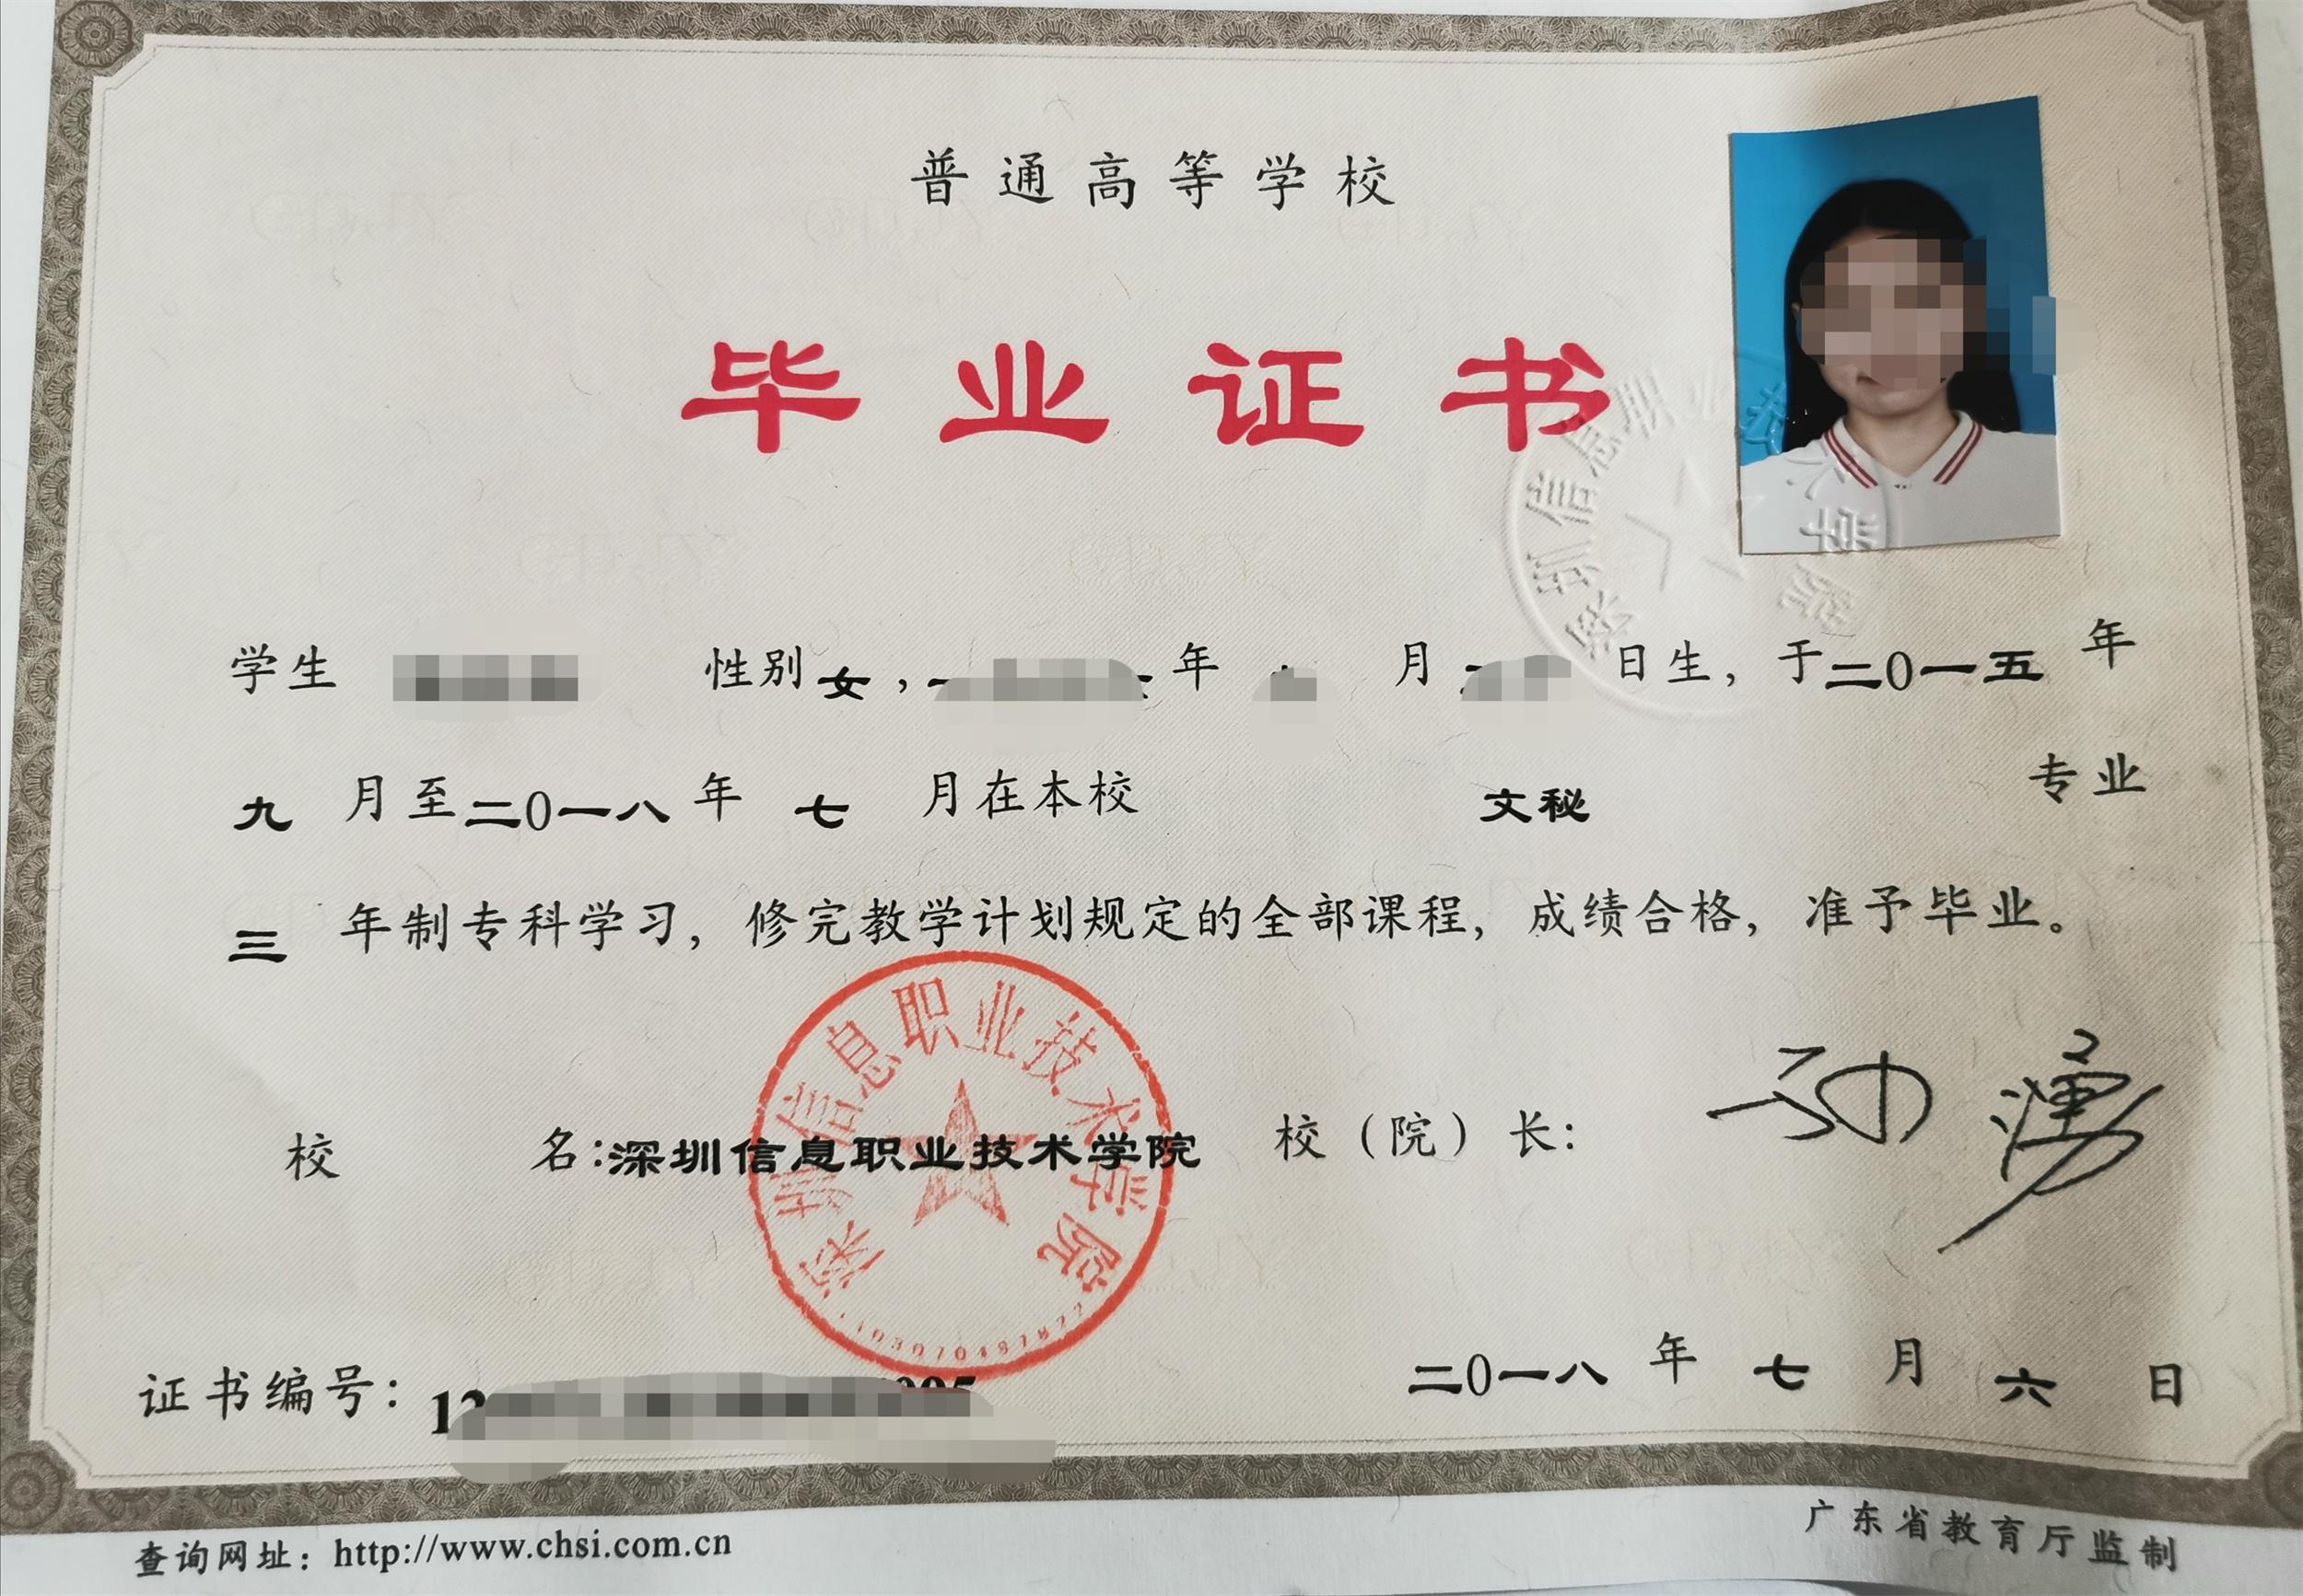 普通高等学校
毕业证书
学生 性别女, 年 月 日生, 于二0一五年
九月至二0一八年七月在本校 文秘 专业
三年制专科学习, 修完教学计划规定的全部课程, 成绩合格, 准予毕业。
校 名:深圳信息职业技术学院 校(院)长:
深圳信息职业技术学院
深圳信息职业技术学院
证书编号: 二0一八年七月六日
查询网址: http://www.chsi.com.cn
广东省教育厅监制